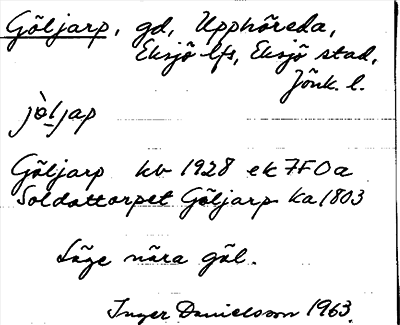 Göljarp, gd, Upphöreda,
Eksjö lfs, Eksjö stad,
Jönk. l.
jòljap
Göljarp kv 1928 ek 7F0a
Soldattorpet Göljarp Ka 1803
Läge nära göl.
Inger Danielsson 1963.